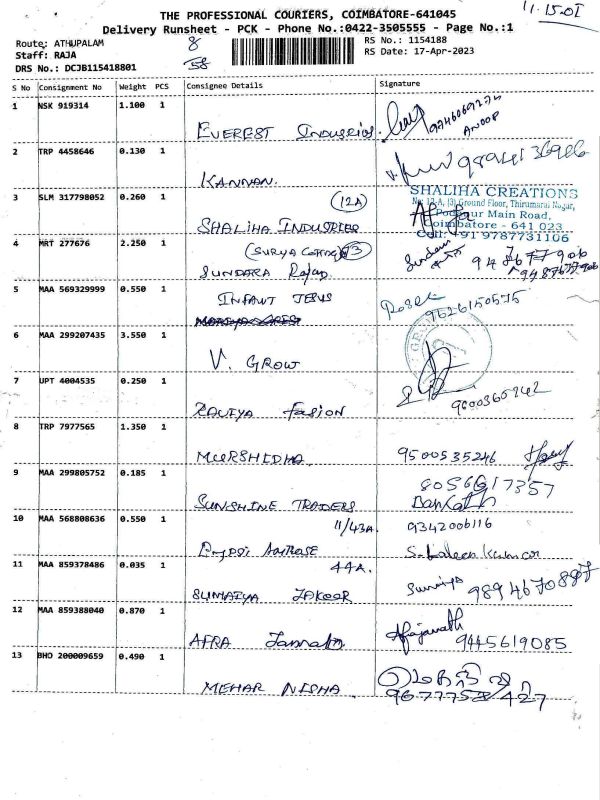 11.15.01
THE PROFESSIONAL COURIERS, COIMBATORE-641045
Delivery Runsheet - PCK - Phone No.:0422-3505555 - Page No.:1
Route: ATHUPALAM 8 RS No.: 1154188
Staff: RAJA 58 RS Date: 17-Apr-2023
DRS No.: DCJB115418801
S No Consignment No Weight PCS Consignee Details Signature
1 NSK 919314 1.100 1
EVEREST INDUSRIES. 9746069274
ANOOP
2 TRP 4458646 0.130 1
KANNAN.
3 SLM 317798052 0.260 1 (12A)
SHALIHA INDUSRIES
SHALIHA CREATIONS
No: 12-A, (3) Ground Floor, Thirumarai Nagar,
Podanur Main Road,
Coimbatore - 641 023
Cell: +91 9787731106
4 MRT 277676 2.250 1
SUNDARA
5 MAA 569329999 0.550 1 INFANT JESUS
9626150575
6 MAA 299207435 3.550 1
V. GROW
7 UPT 4004535 0.250 1
KAVIYA FASION 9600365942
8 TRP 7977565 1.350 1
MURSHIDHA. 9500535246
9 MAA 299805752 0.185 1 8056617357
SUNSHINE TRADERS
10 MAA 568808636 0.550 1 11/43A. 9342006116
11 MAA 859378486 0.035 1 44A.
SUMAIYA ZAKEER 9894670897
12 MAA 859388040 0.870 1
AFRA Jannath 9445619085
13 BHO 200009659 0.490 1
MEHAR NISHA.